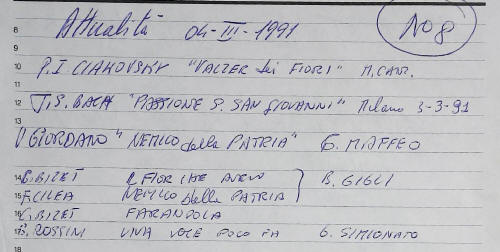 8 Attualità 04-III-1991 No 8
9
10 P.I. CIAKOVSKY "VALZER dei FIORI" M.CAR.
11
12 J.S. BACH "PASSIONE S. SAN GIOVANNI" Milano 3-3-91
13
U GIORDANO "NEMICO della PATRIA" G. MAFFEO
14 G. BIZET IL FIOR CHE AVEVI B. GIGLI
15 F. CILEA NEMICO della PATRIA
16 G. BIZET FARANDOLA
17 G. ROSSINI UNA VOCE POCO FA G. SIMIONATO
18